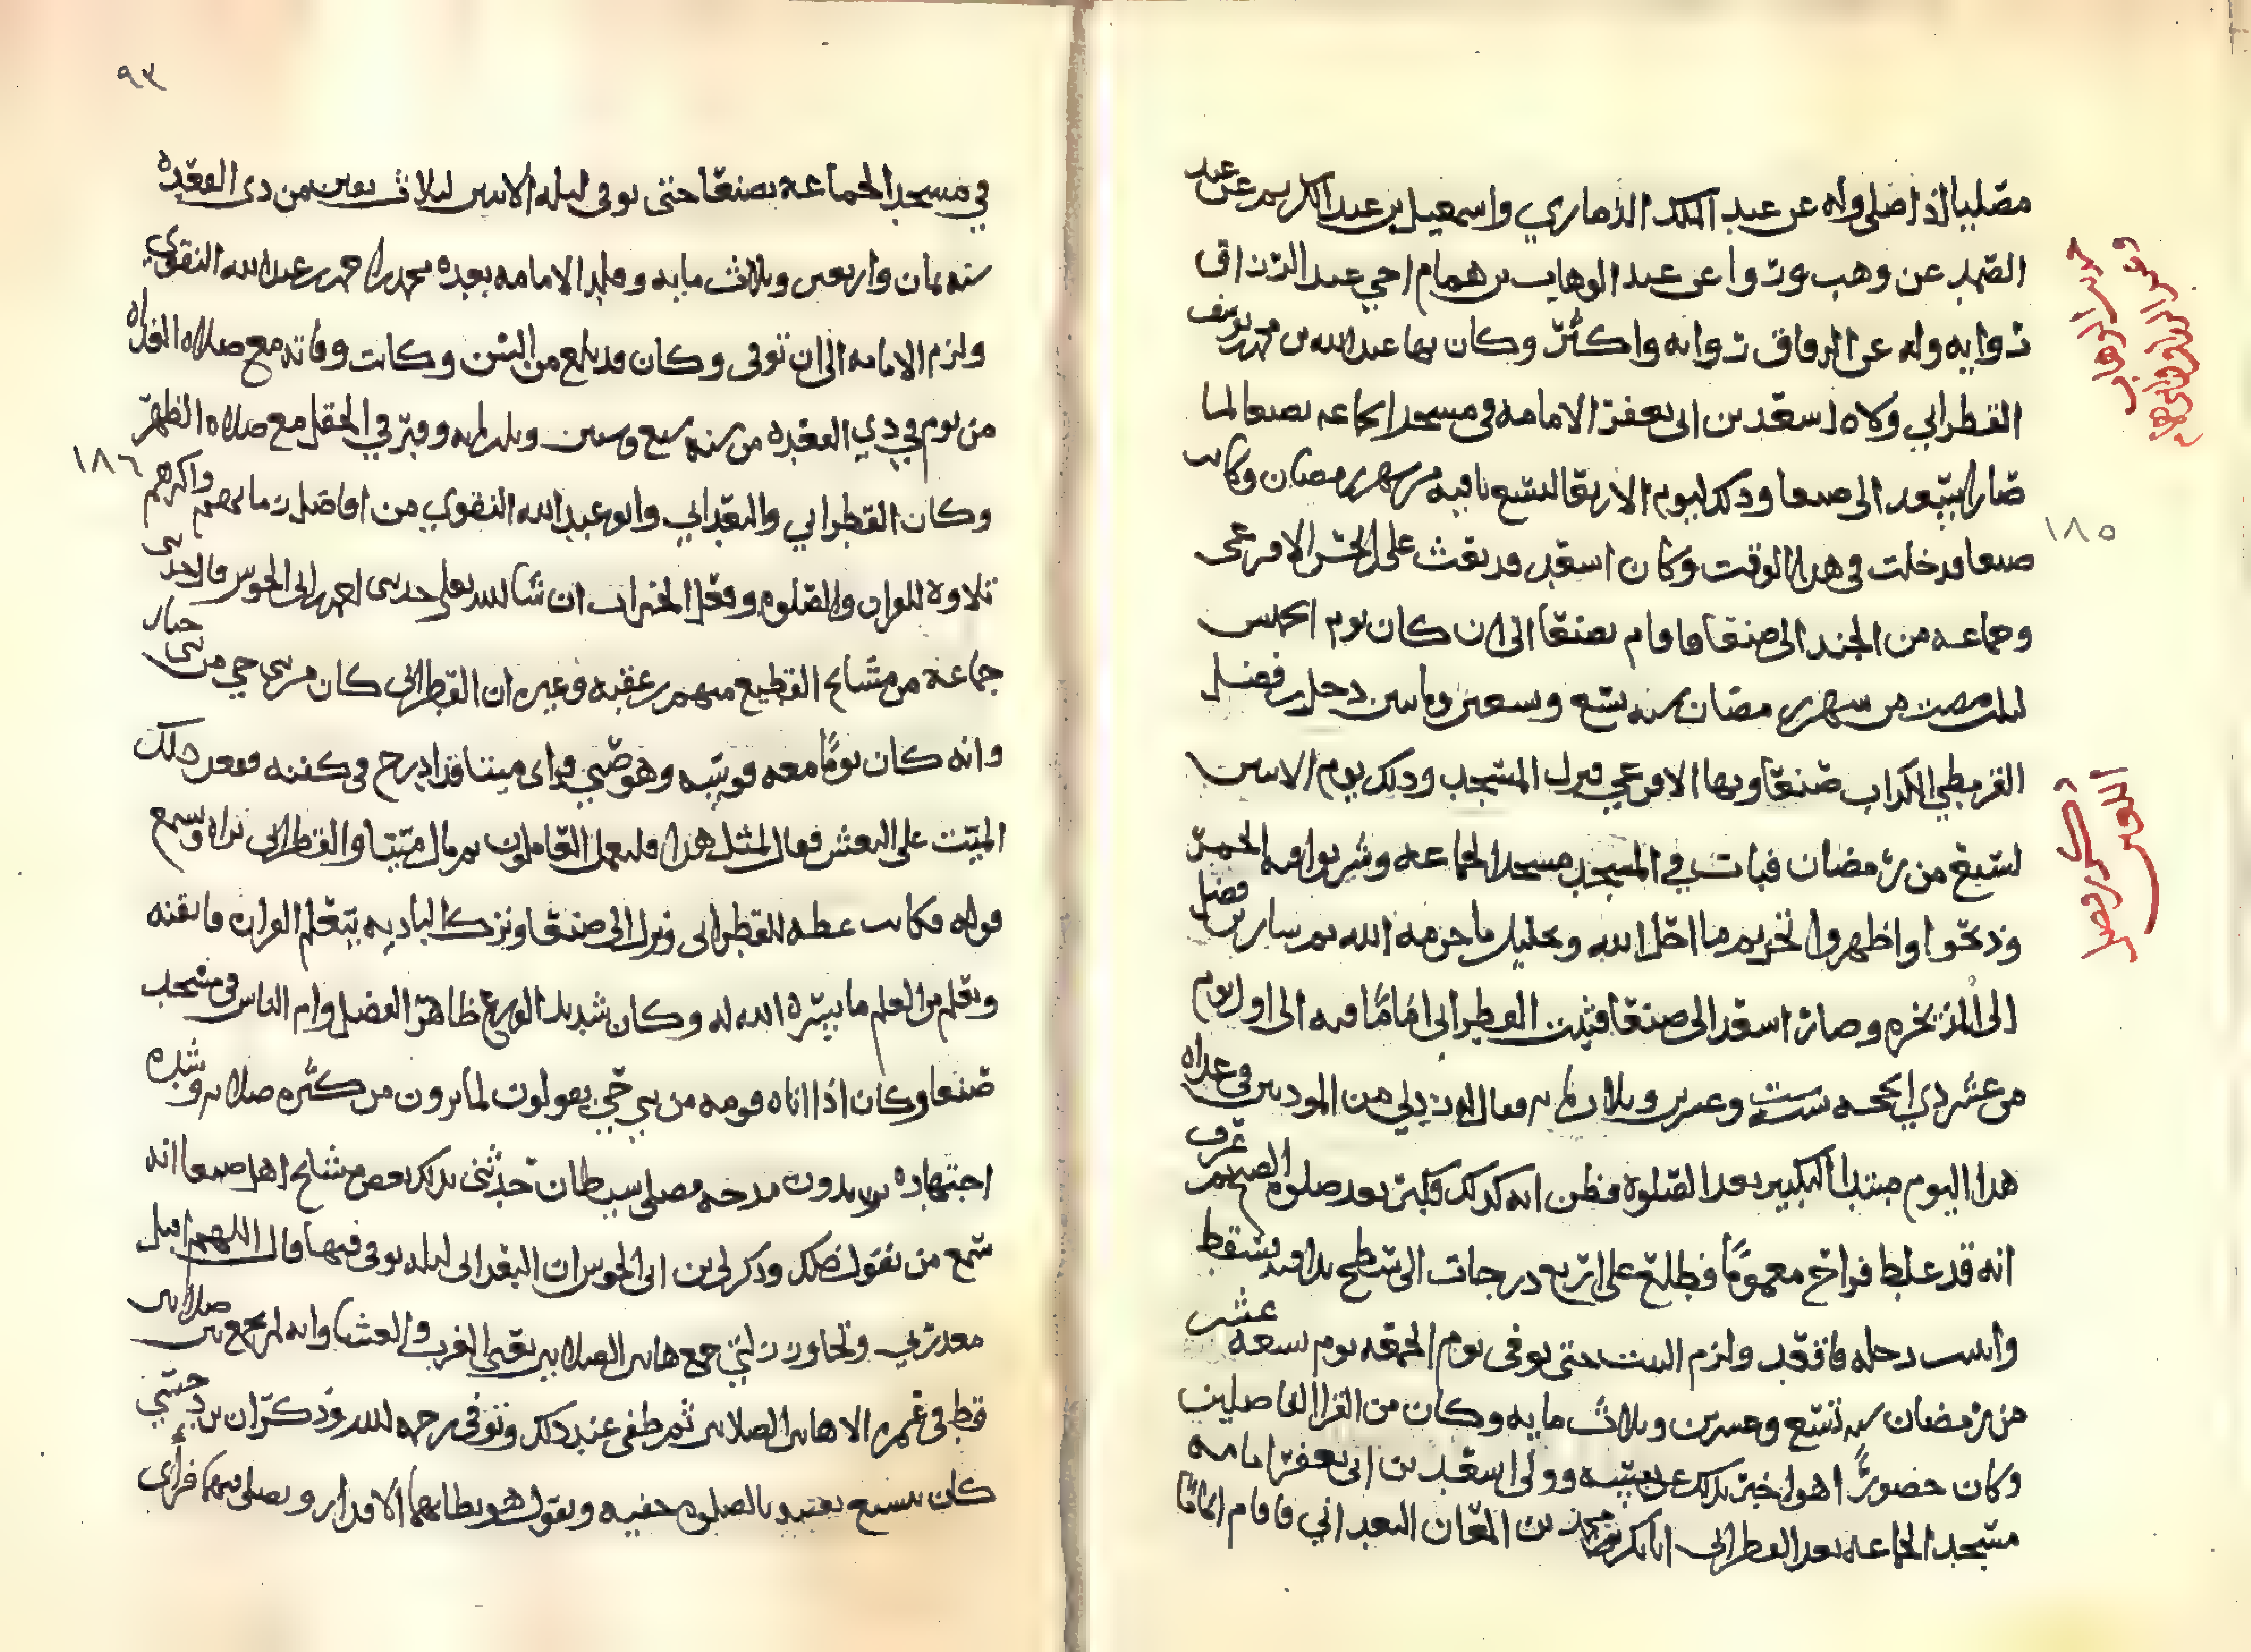 مصليا اذا صلى وله عن عبد الملك الذماري واسمعيل بن عبد الكريم عن عبد
الصمد عن وهب وروا عن عبد الوهاب بن همام اخي عبد الرزاق
روايه وله عن الرواق روايه واكثر وكان بها عبد الله بن محمد بن يوسف
القطراني ولاه اسعد بن ابي يعفر الامامه في مسجد الجماعه بصنعا لما
صار اسعد الى صنعا وذلك ليوم الاربعا لتسع باقيه من شهر رمضان وكانت
صنعا قد خلت في هذا الوقت وكان اسعد قد بعث علي الحر الاقرعي
وجماعه من الجند الى صنعا فاقام بصنعا الى ان كان يوم الخميس
مضت من شهر رمضان سنه تسع وتسعين ومايتين دخل بن فضل
القرمطي الكذاب صنعا وبها الاقرعي فنزل المسجد وذلك يوم الاثنين
لتسع من رمضان فبات في المسجد مسجد الجماعه وشربوا فيه الخمر
وذبحوا واظهروا تحريم ما احل الله وتحليل ما حرمه الله ثم سار بن فضل
الى المذيخره وصار اسعد الى صنعا فثبت القطراني اماما فيه الى اول يوم
من عشر ذي الحجه سنه ست وعشرين وثلاث مايه فقال لي من الموذنين في غداه
هذا اليوم مبتدا التكبير بعد الصلوة فظن انه كذلك فكبر بعد صلوة الصبح ثم عرف
انه قد غلط فراح مغموما فطلع على اربع درجات الى سطح داره فسقط
وانبت رجله فاقعد ولزم البيت حتى توفي يوم الجمعه يوم تسعه عشر
من رمضان سنه تسع وعشرين وثلاث مايه وكان من القرا الفاضلين
وكان حصورا اهوا خبر بذلك عن نفسه وولى اسعد بن ابي يعفر امامه
مسجد الجماعه بعد القطراني ابا بكر محمد بن المعان البغداني فاقام اماما
ذكر فضل اللعين
١٨٥
٩٣
في مسجد الجماعه بصنعا حتى توفي ليله الاثنين لثلاث بقين من ذي القعده
سنه ثمان واربعين وثلاث مايه وقلد الامامه بعده محمد بن احمد بن عبد الله النقوي
ولزم الامامه الى ان توفي وكان قد بلغ من السن وكانت وفاته مع صلاه الغداه
من يوم في ذي القعده من سنه سبع وستين وثلثمايه وقبر في الحقل مع صلاه الظهر
وكان القطراني والبغداني وابو عبد الله النقوي من افاضل زمانهم واكثرهم
تلاوة للقران والصلوه وفعل الخيرات ان شا الله تعلى حدثني احمد بن ابي الحوس قال حدثني
جماعه من مشايخ القطيع منهم بن عقبه وغيره ان القطراني كان من بني حي من بني حبار
وانه كان يوما معه قوسه وهو صبي فراى ميتا قد ادرج في كفنه فقعد ذلك
الميت على النعش فقال لمثل هذا فليعمل العاملون ثم مال ميتا والقطراني يراه ويسمع
قوله فكانت عظه للقطراني ونزل الى صنعا وترك الباديه يتعلم القران فاتقنه
وتعلم من العلم ما يسره الله له وكان شديد الورع ظاهر الفضل وام الناس في مسجد
صنعا وكان اذا اتاه قومه من بني حي يقولون لما يرون من كثره صلاته وشده
اجتهاده يريدون مدحه مصلي شيطان حدثني بذلك بعض مشايخ اهل صنعا انه
سمع من يقول ذلك وذكر لي بن ابي الحوس ان البغداني ليله توفي فيها قال اللهم اقبل
معذرتي وتجاوز زلتي جمع هاتين الصلاتين يعني المغرب والعشا وانه لم يجمع بين صلاتين
قط في عمره الا هاتين الصلاتين ثم طفى عند ذلك وتوفي رحمه الله وذكر ان بن حسي
كان يسبغ يعتد بالصلوه خفيه ويقول هو يطا بهما الاقدار ويصلي فيهما فراى
١٨٦